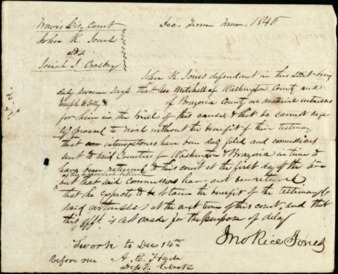 Harris Dis. Court
John R. Jones
ats
Josiah J. Crosby
Dec. Term 1846
John R. Jones defendant in this suit being
duly sworn says that Mitchell of Washington County and
of Brazoria County are material witnesses
for him in the trial of this cause & that he cannot
proceed to trial without the benefit of their testimony
that interrogatories have been duly filed and commissions
sent to said Counties of Washington & Brazoria in time to
have been returned to this court at the first day of the term
but that said commissions have not been returned
that he expects to obtain the benefit of the testimony of
said witnesses at the next term of this court, and that
this afft is not made for the purpose of delay
Jno Rice Jones
Sworn to Dec 14th
before me
Dept Clerk